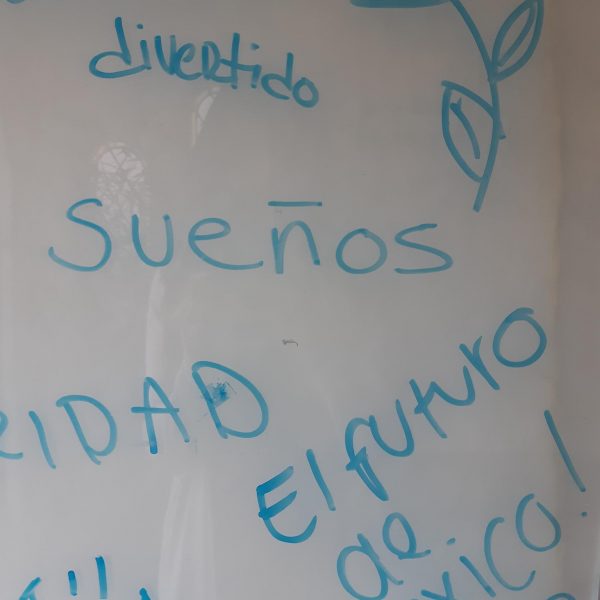 divertido
sueños
RIDAD
El futuro
de
xico!